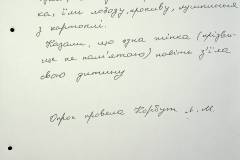 ка, їли лободу, кропиву, лушпиння
з картоплі.
Казали, що одна жінка (прізви-
ще не пам'ятаю) навіть з'їла
свою дитину
Опрос провела Корбут Л. М.